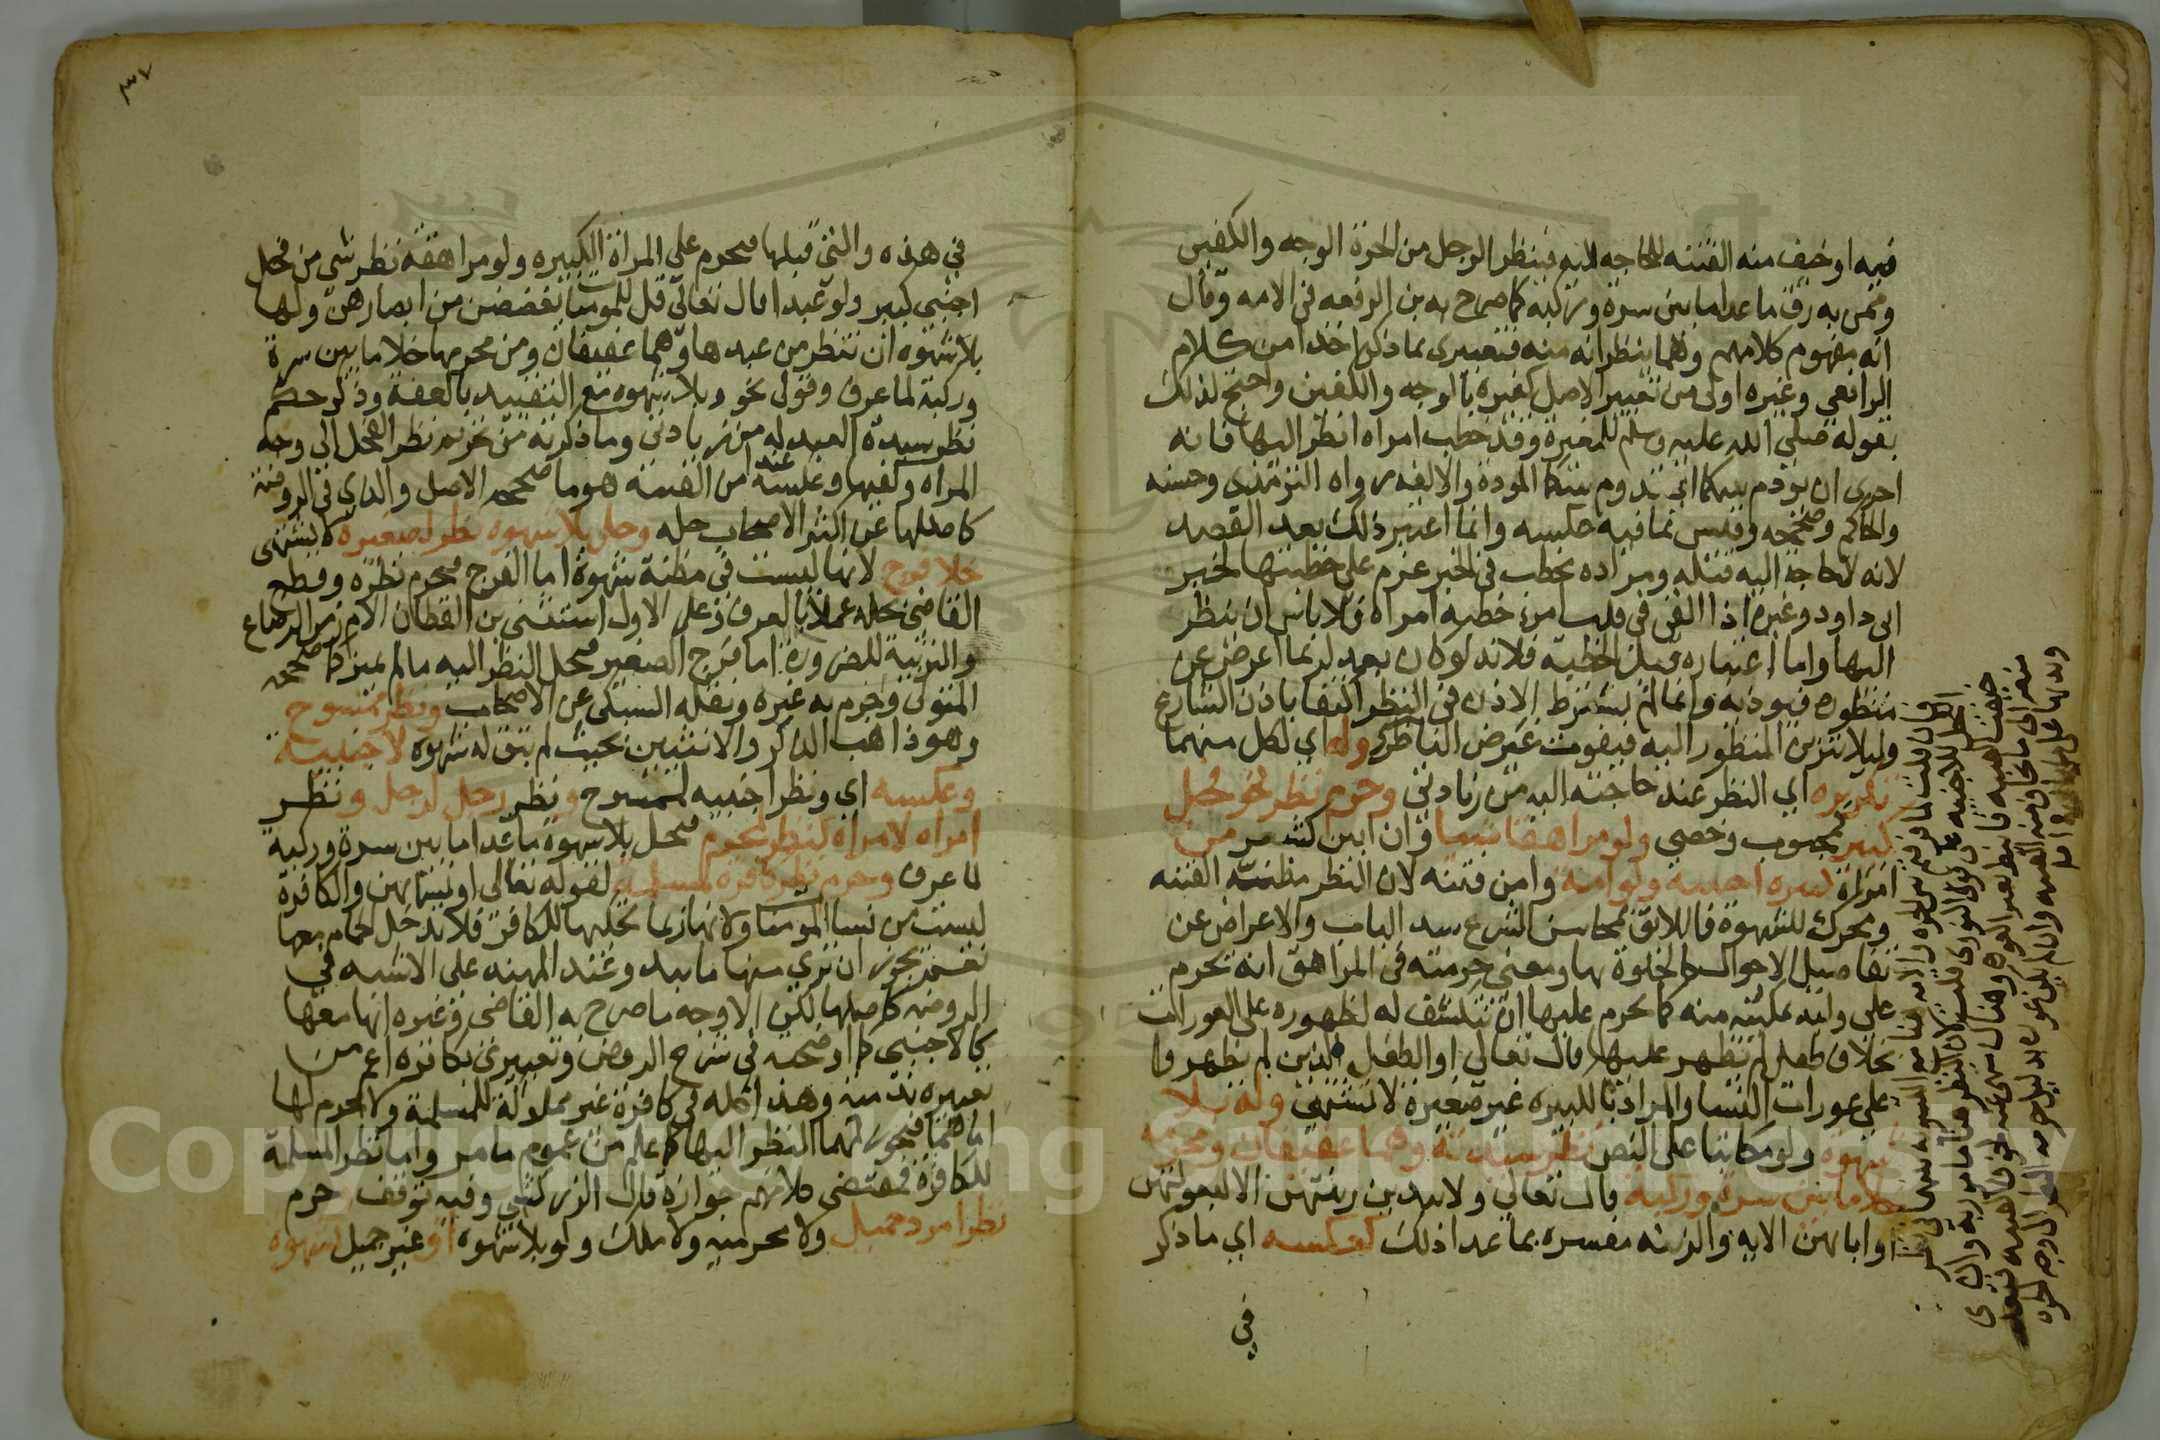 فيه او خيف منه الفتنه للحاجه اليه فينظر الرجل من الحرة الوجه والكفين
وممن به رق ماعدا ما بين سرة وركبة كما صرح به بن الرفعه في الامه وقال
انه مفهوم كلامهم وهما ينظرانه منه فتعبيري بما ذكر اخذا من كلام
الرافعي وغيره اولى من تعبير الاصل كغيره بالوجه والكفين واحتج لذلك
بقوله صلى الله عليه وسلم للمغيرة وقد خطب امراه انظر اليها فانه
احرى ان يودم بينكما اي تدوم بينكما المودة والالفه رواه الترمذي وحسنه
والحاكم وصححه وقيس بما فيه عكسه وانما اعتبر ذلك بعد القصد
لانه لا حاجة اليه قبله ومراده بخطب في الخبر عزم على خطبتها لخبر
ابي داود وغيره اذا القي في قلب امرء خطبة امراه فلا باس ان ينظر
اليها واما اعتباره قبل الخطبة فلانه لو كان بعد لربما اعرض عن
منظوره فيوذيه وانما لم يشترط الاذن في النظر اكتفا باذن الشارع
وليلا يتزين المنظور اليه فيفوت غرض الناظر وله اي لكل منهما
تكريره اي النظر عند حاجته اليه من زيادتي وحرم نظر نحو فحل
كبير كمجبوب وخصي ولو مراهقا شيا وان ابين كشعر من
امراة كبيره اجنبية ولو امة وامن فتنه لان النظر مظنة الفتنه
ومحرك للشهوة فاللائق بمحاسن الشرع سد الباب والاعراض عن
تفاصيل الاحوال كالخلوة بها ومعنى حرمته في المراهق انه يحرم
على وليه تمكينه منه كما يحرم عليها ان تنكشف له لظهوره على العورات
بخلاف طفل لم يظهر عليها قال تعالى او الطفل الذين لم يظهروا
على عورات النسا والمراد بالكبيره غير صغيرة لا تشتهى وله بلا
شهوة ولو مكاتبا على النص نظر سيدته وهما عفيفان ومحرمه
خلا ما بين سرة وركبة قال تعالى ولا يبدين زينتهن الا لبعولتهن
او ابائهن الاية والزينه مفسره بما عدا ذلك كعكسه اي ما ذكر
في
٣٧
في هذه والتي قبلها فيحرم على المراة الكبيره ولو مراهقة نظر شي من فحل
اجنبي كبير ولو عبدا قال تعالى قل للمومنات يغضضن من ابصارهن ولها
بلا شهوه ان تنظر من عبدها وهما عفيفان ومن محرمها خلا ما بين سرة
وركبة لما عرف وقولي نحو وبلا شهوه مع التقييد بالعفة وذكر حكم
نظر سيدة العبد له من زيادتي وما ذكرته من تحريم نظر الفحل الى وجه
المراه وكفيها وعكسه عند امن الفتنة هو ما صححه الاصل والذي في الروضة
كاصلها عن اكثر الاصحاب حله وحل بلا شهوه نظر لصغيرة لا تشتهى
خلا فرج لانها ليست في مظنة شهوة اما الفرج فيحرم نظره وقطع
القاضي بحله عملا بالعرف وعلى الاول استثنى بن القطان الام زمن الرضاع
والتربية للضرورة اما فرج الصغير فيحل النظر اليه ما لم يميز كما صححه
المتولي وجزم به غيره ونقله السبكي عن الاصحاب ونظر ممسوح
وهو ذاهب الذكر والانثيين بحيث لم يبق له شهوه لاجنبية
وعكسه اي ونظر اجنبيه لممسوح ونظر رجل لرجل ونظر
امراه لامراه كنظر لمحرم فيحل بلا شهوه ماعدا ما بين سرة وركبة
لما عرف وحرم نظر كافرة لمسلمة لقوله تعالى او نسائهن والكافرة
ليست من نسا المومنات ولانها ربما تحكيها للكافر فلا تدخل الحمام معها
نعم يجوز ان ترى منها ما يبدو عند المهنه على الاشبه في
الروضه كاصلها لكن الاوجه ما صرح به القاضي وغيره انها معها
كالاجنبي كما اوضحته في شرح الروض وتعبيري بكافره اعم من
تعبيره بذمية وهذا كله في كافرة غير مملوكة للمسلمة ولا محرم لها
اما هما فيجوز لهما النظر اليها كما علم من عموم ما مر واما نظر المسلمة
للكافرة فمقتضى كلامهم جوازه قال الزركشي وفيه توقف وحرم
نظر امرد جميل ولا محرميه ولا ملك ولو بلا شهوه او غير جميل بشهوه